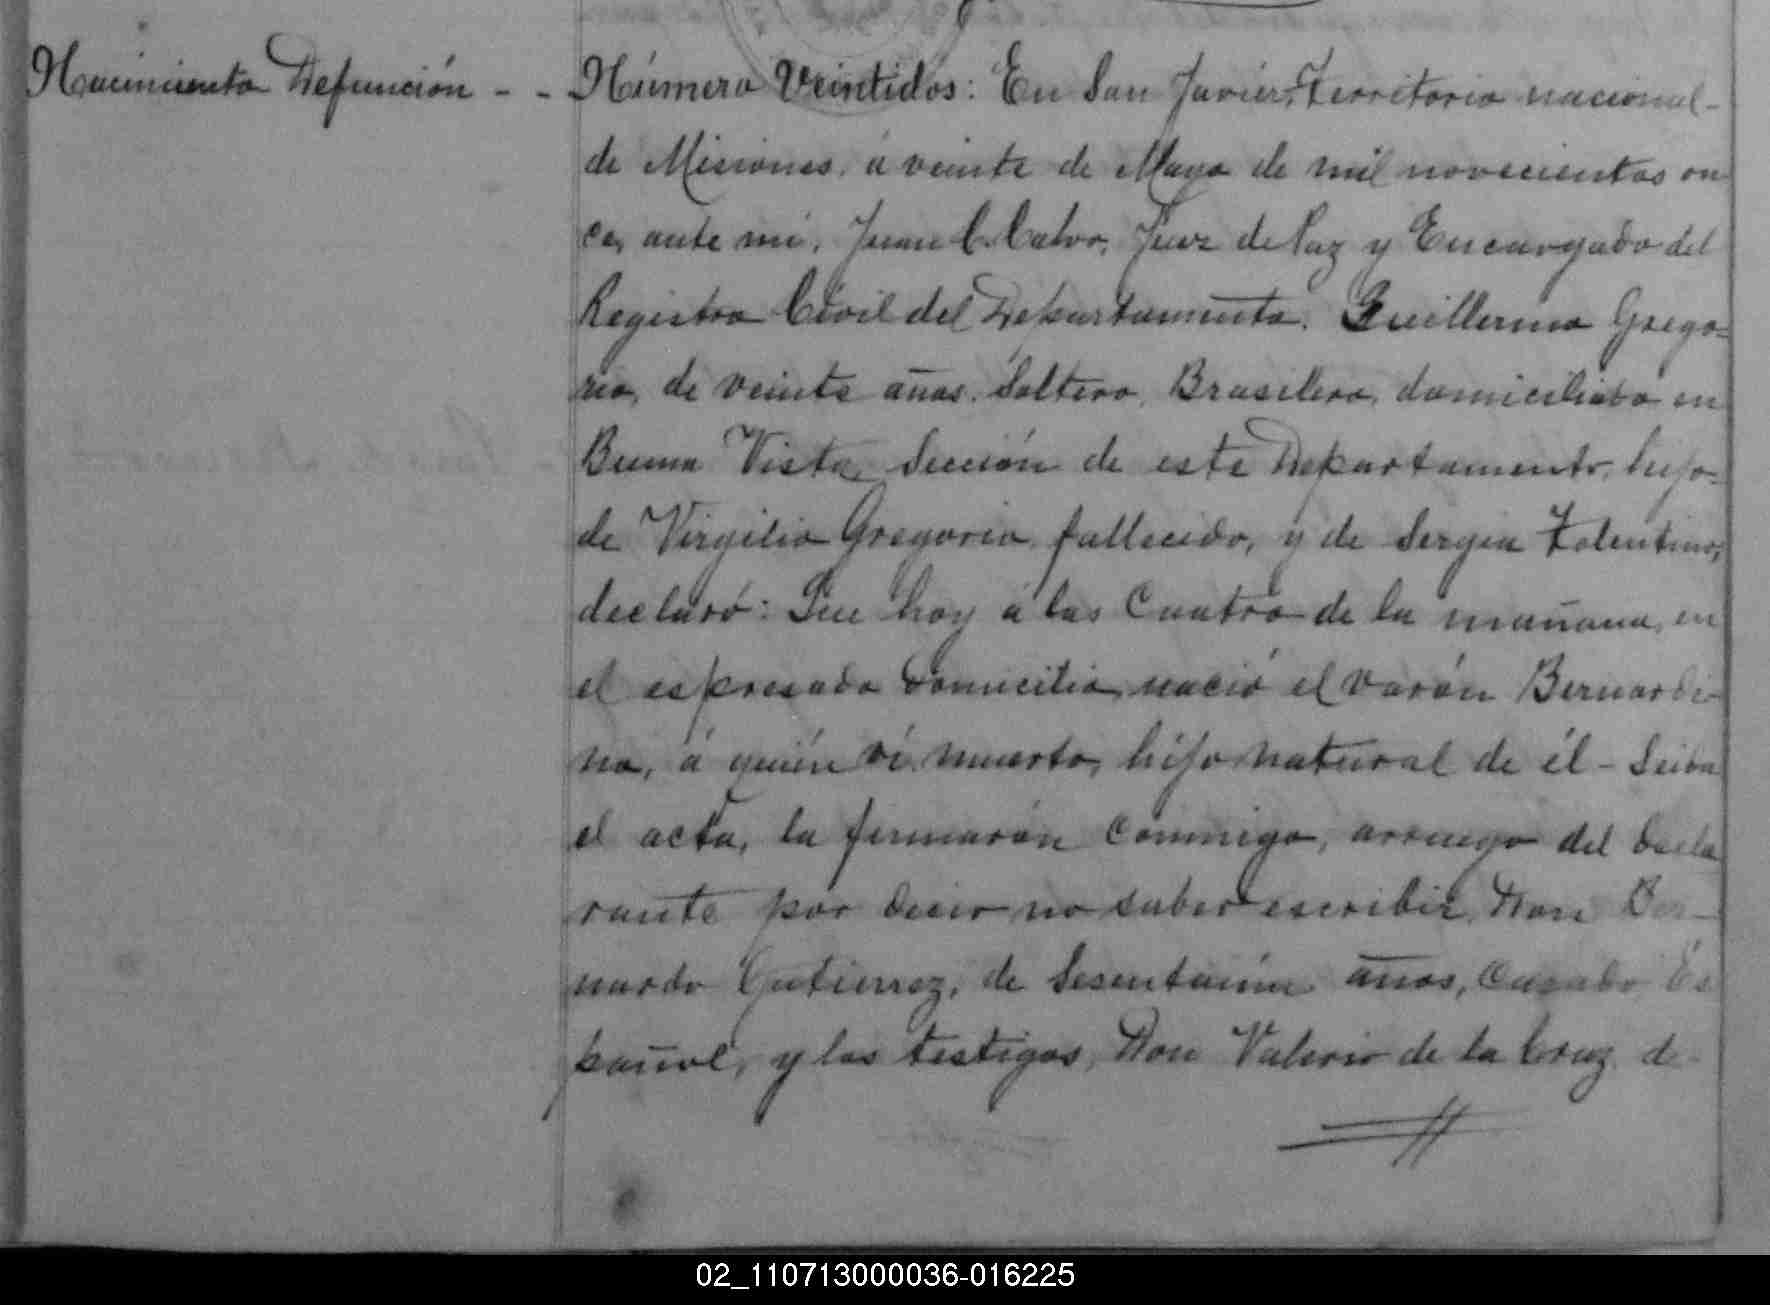 Nacimiento Defunción - -
Número Veintidós: En San Javier, Territorio nacional-
de Misiones, á veinte de Mayo de mil novecientos on
ce, ante mí, Juan C. Calvo, Juez de Paz y Encargado del
Registro Civil del Departamento. Guillermo Grego=
rio, de veinte años, Soltero, Brasilero, domiciliado en
Buena Vista, Sección de este Departamento, hijo=
de Virgilio Gregorio, fallecido, y de Sergia Tolentino,
declaró: Que hoy á las Cuatro de la mañana, en
el espresado domicilio, nació el varón Bernardi-
no, á quién ví muerto, hijo natural de él - Leida
el acta, la firmaron conmigo, arruego del decla
rante por decir no saber escribir, Don Ber-
nardo Gutierrez, de Sesentaiún años, Casado, Es
pañol, y los testigos, Don Valerio de la Cruz, de
02_110713000036-016225